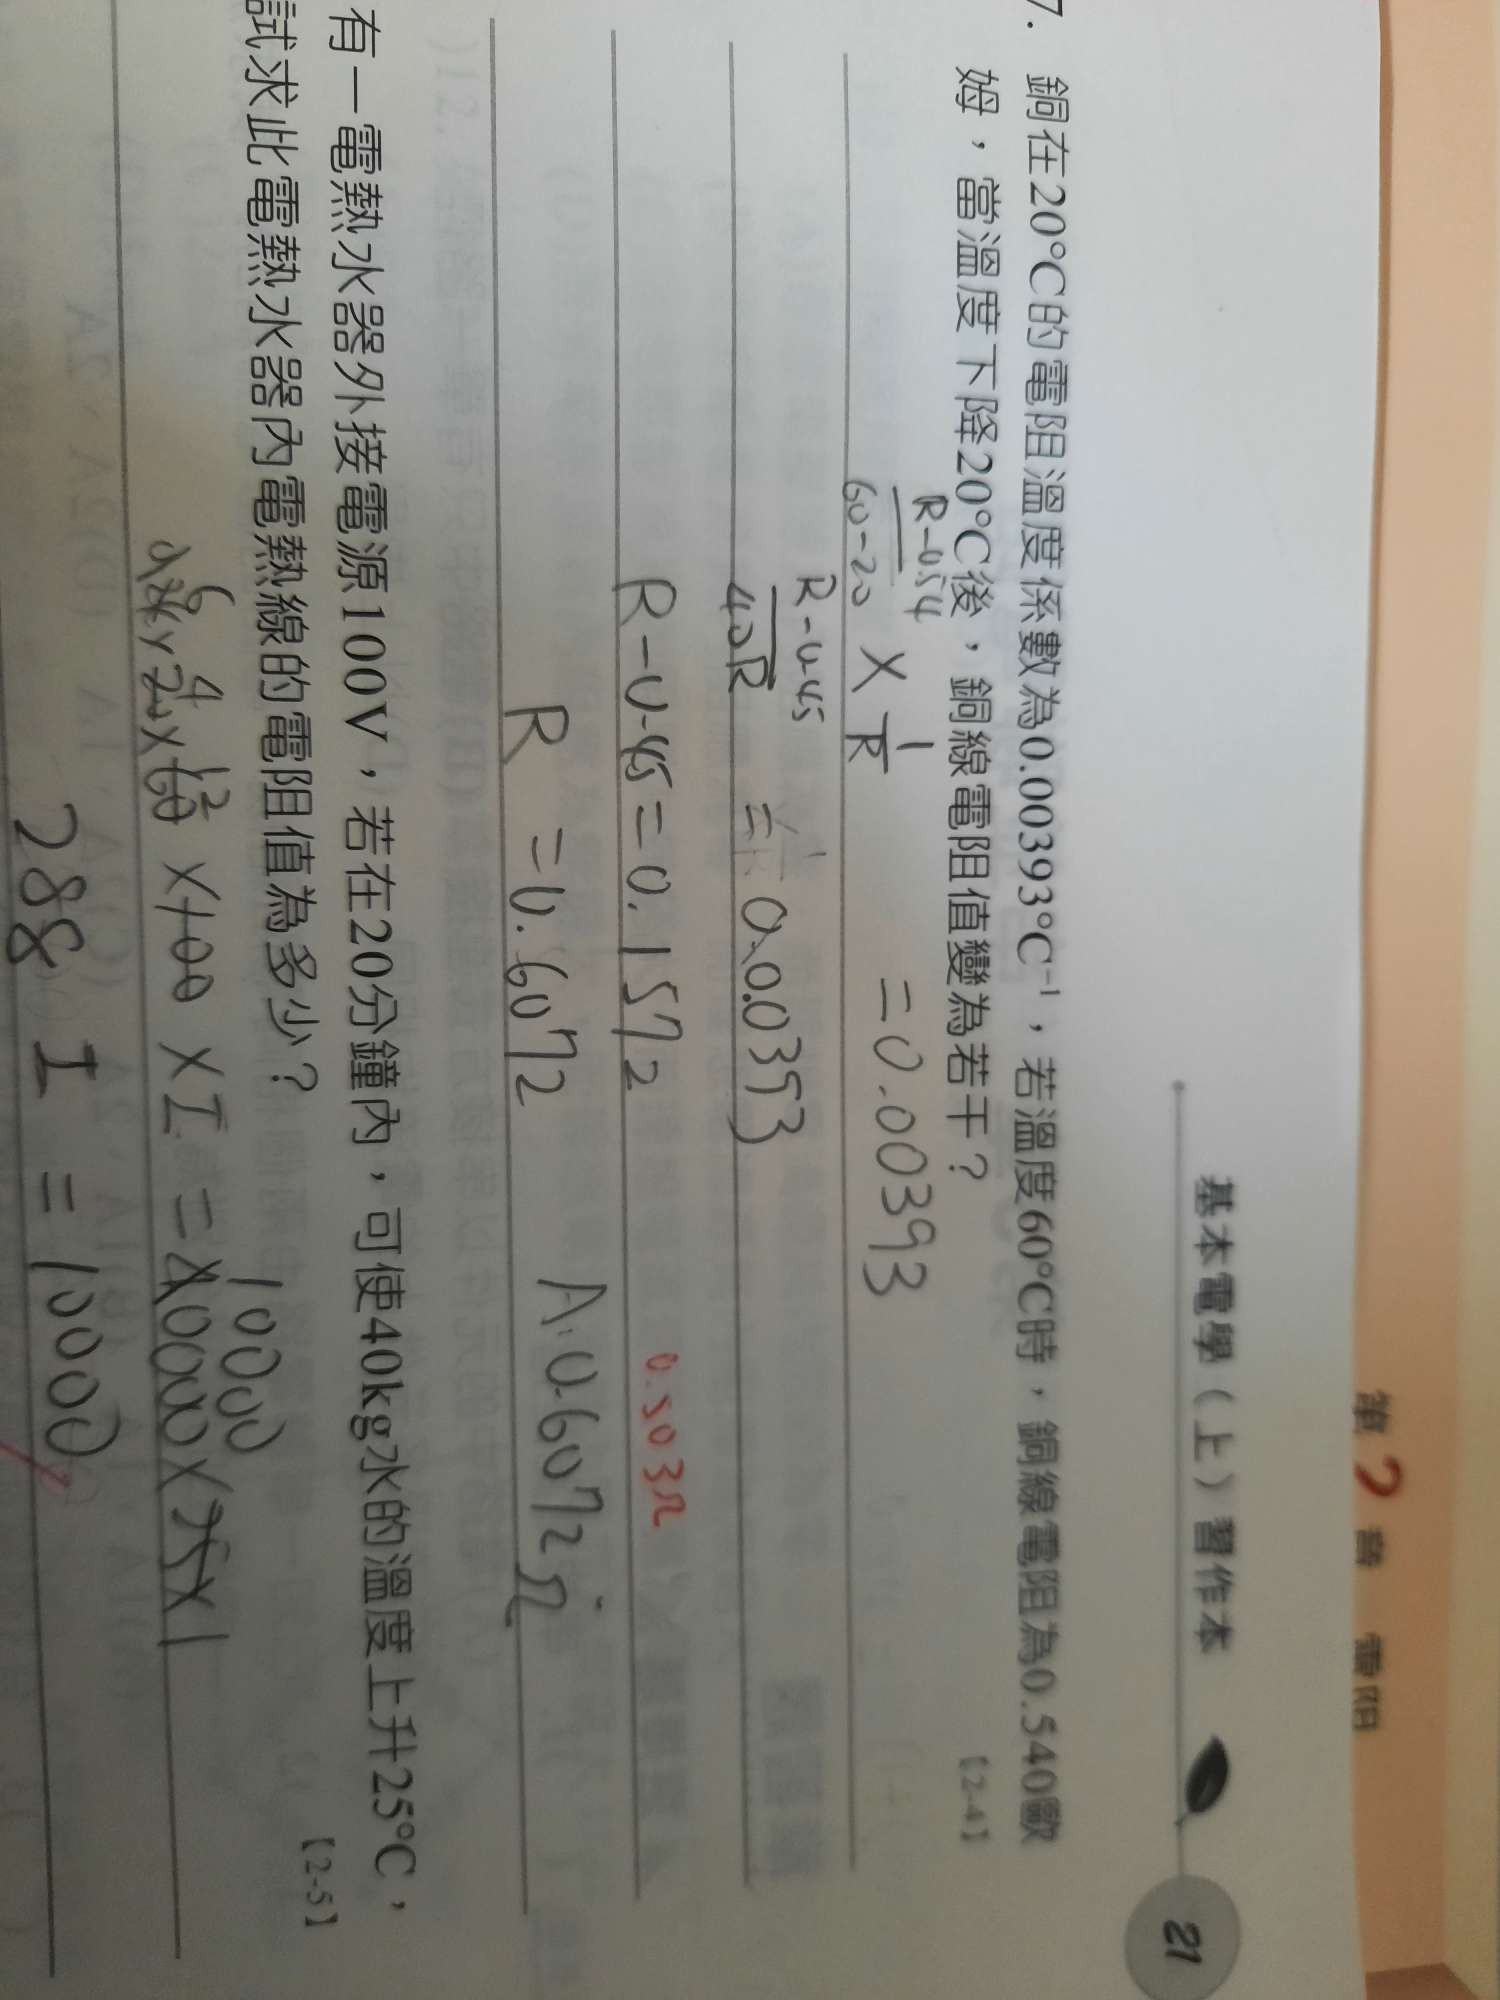 第2章 電阻
基本電學(上)習作本
21
7. 銅在20°C的電阻溫度係數為0.00393°C⁻¹，若溫度60°C時，銅線電阻為0.540歐
姆，當溫度下降20°C後，銅線電阻值變為若干？ 【2-4】
R-0.54
60-20 × 1/R = 0.00393
R-0.45
40R = 0.00393
R-0.45=0.1572 0.503Ω
R = 0.6072 A:0.6072Ω
有一電熱水器外接電源100V，若在20分鐘內，可使40kg水的溫度上升25°C，
試求此電熱水器內電熱線的電阻值為多少？ 【2-5】
6 4 12 10000
×100 × I = 40000×25×1
288 I = 10000